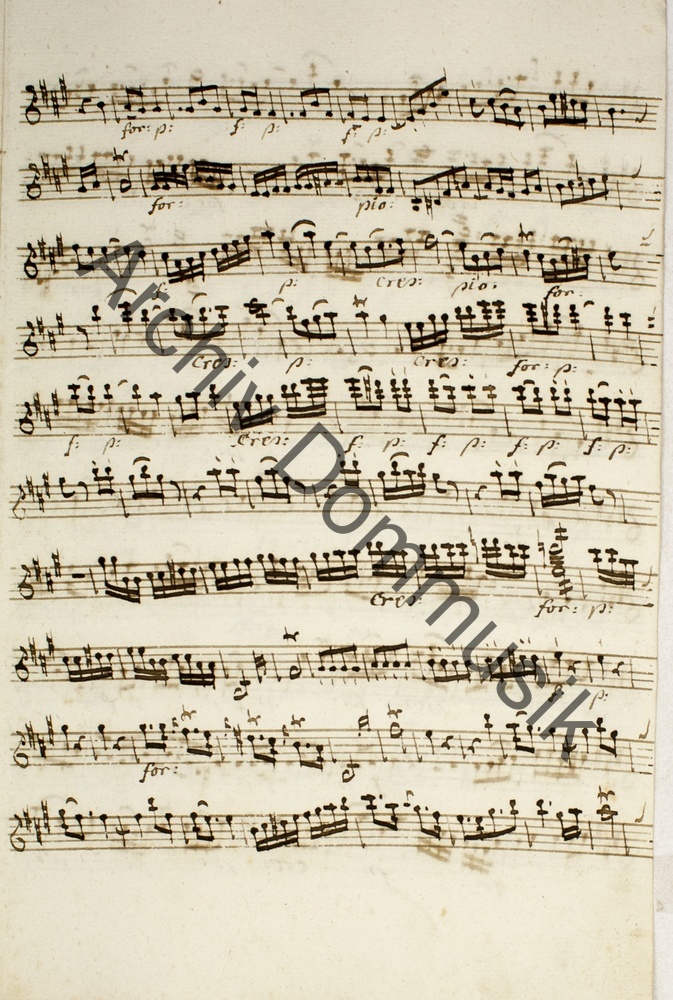 for: p: f: p: f: p:
for: pio:
f: p: cres: pio: for:
cres: p: cres: for: p:
f: p: cres: f: p: f: p: f: p: f: p:
cres: for: p:
p:
for:
Archiv Dommusik